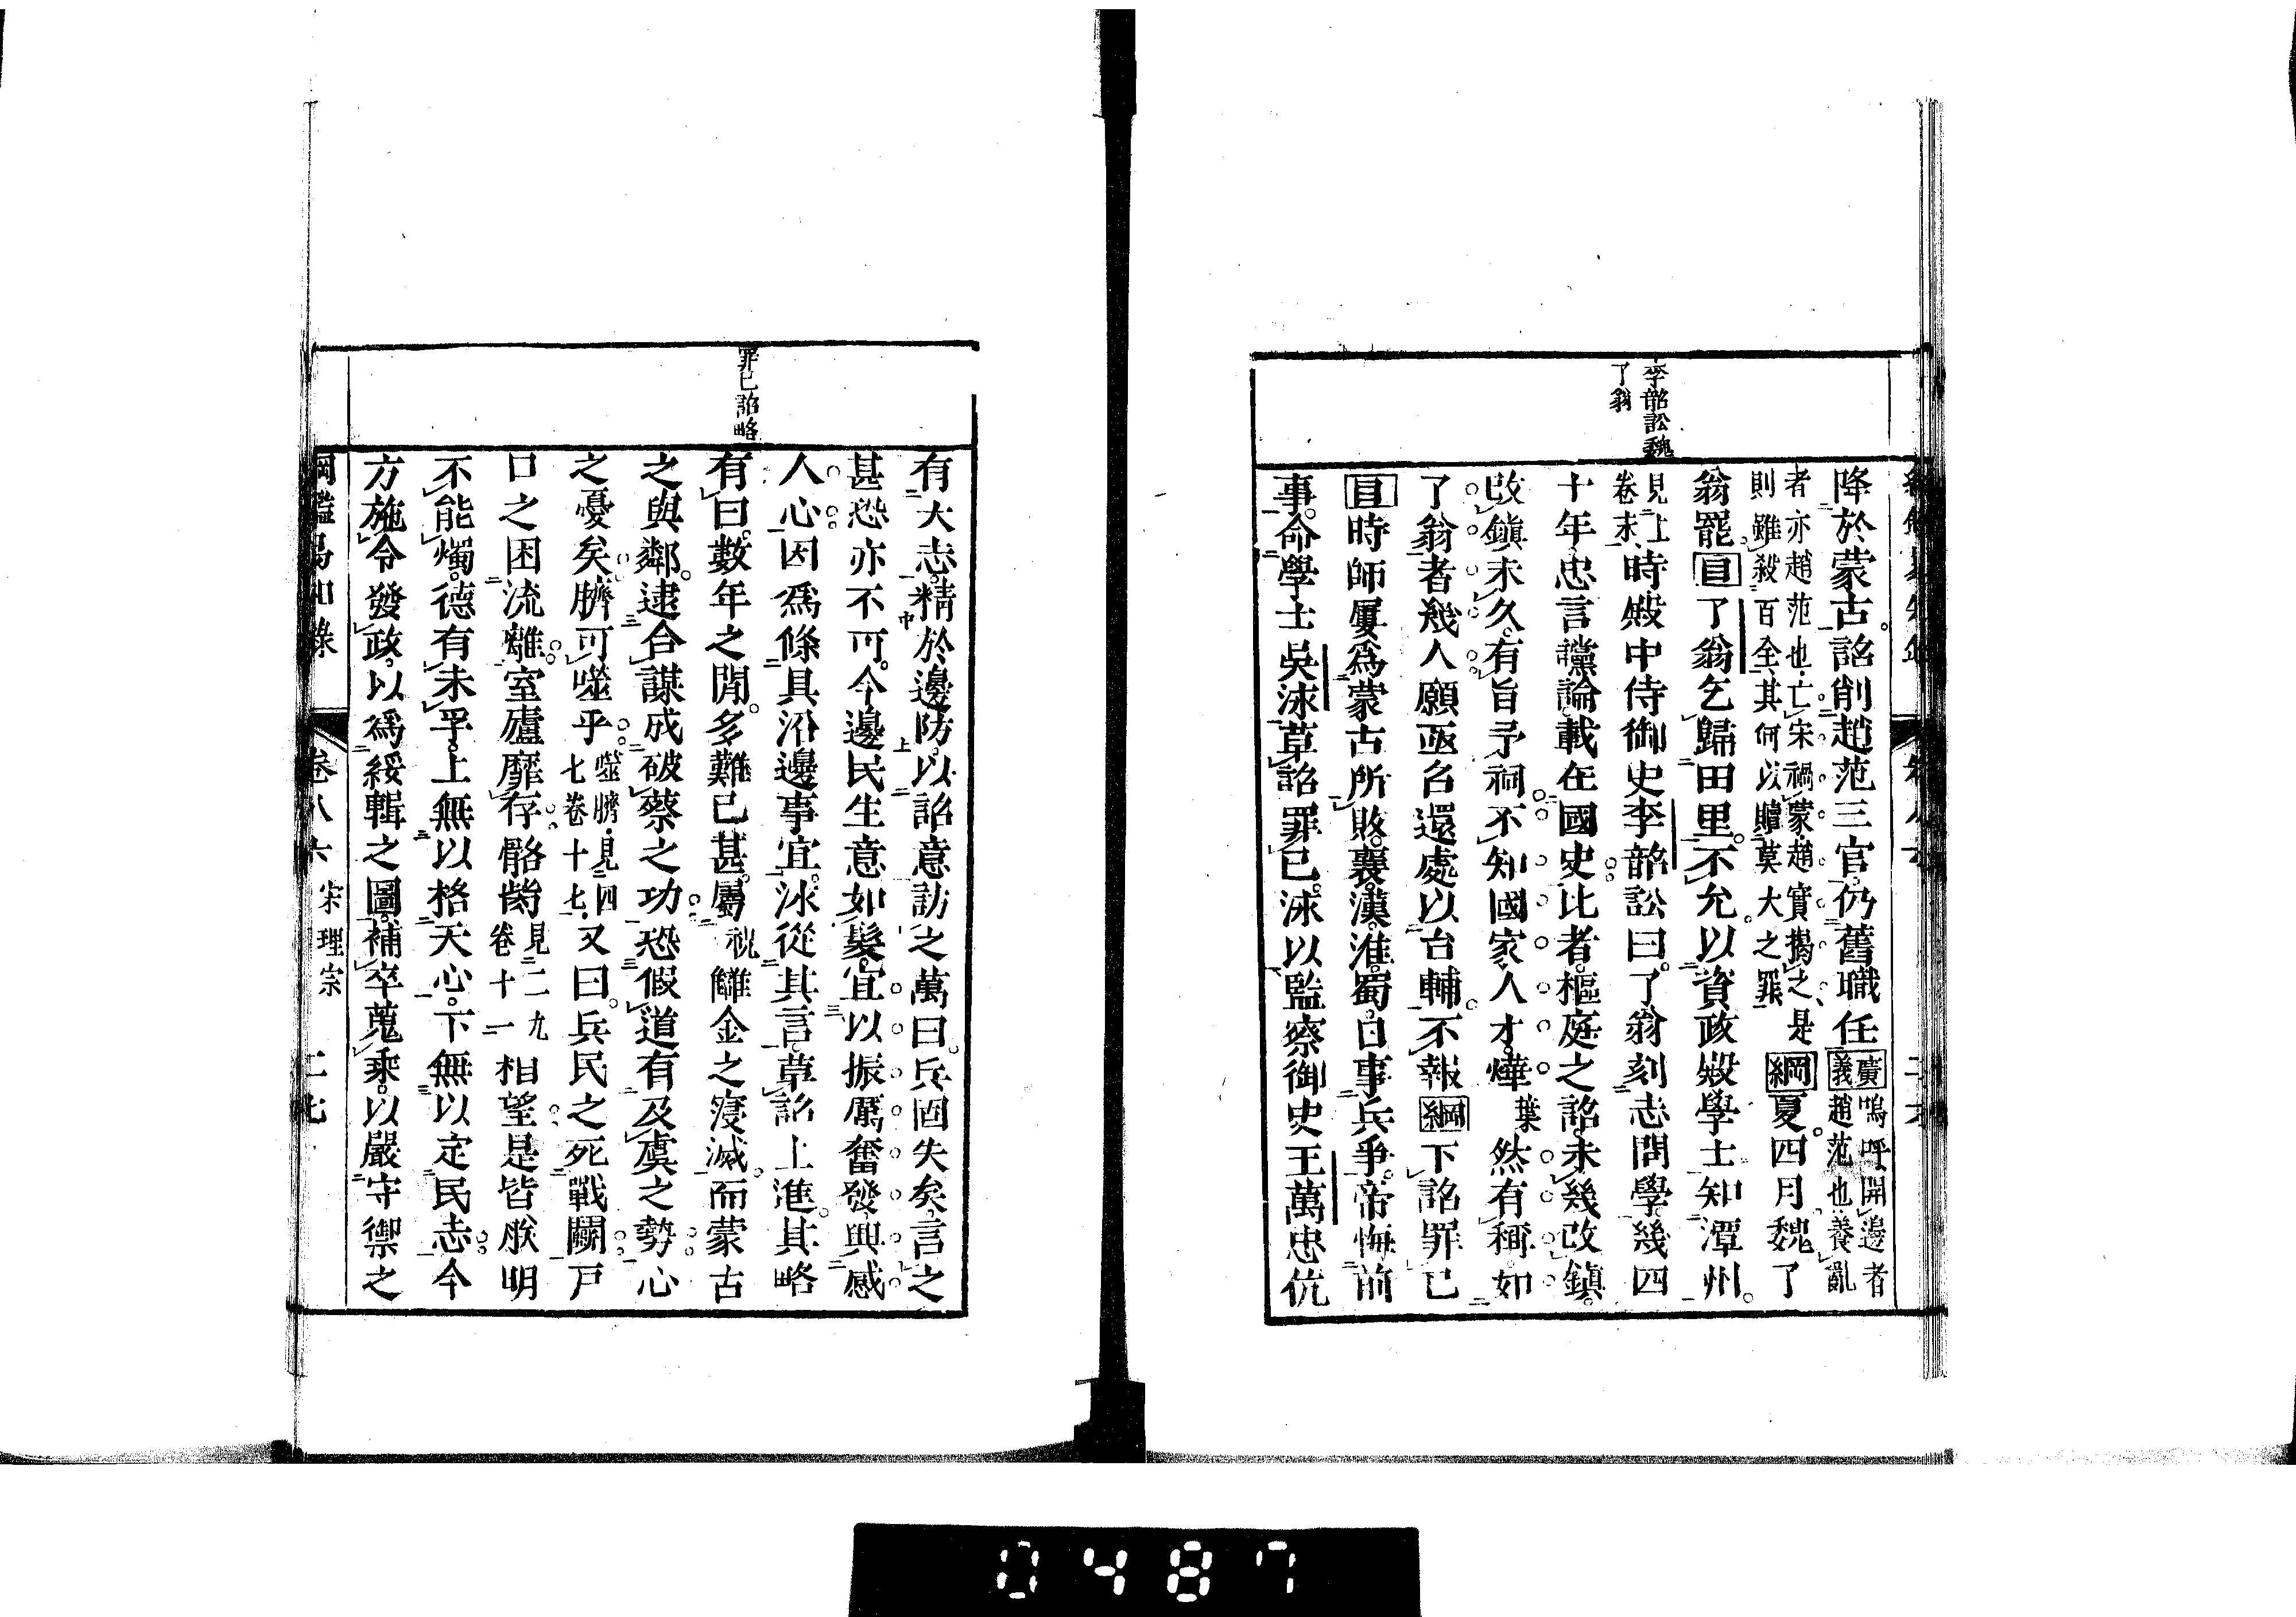 李韶訟魏
了翁
降於蒙古。詔削趙范三官。仍舊職任廣義嗚呼開邊者趙范也養亂
者亦趙范也、亡宋禍蒙、趙實搆之、是則雖殺百全、其何以贖莫大之罪綱夏四月魏了
翁罷目了翁乞歸田里。不允。以資政殿學士知潭州。
見上卷末時殿中侍御史李韶訟曰。了翁刻志問學。幾四
十年。忠言讜論。載在國史。比者。樞庭之詔。未幾改鎮。
改鎮未久。有旨予祠。不知國家人才。燁葉然有稱。如
了翁者幾人。願亟召還。處以台輔。不報綱下詔罪己
目時師屢爲蒙古所敗。襄。漢。淮。蜀。日事兵爭。帝悔前
事。命學士吳泳草詔罪己。泳以監察御史王萬忠伉
罪己詔略
有大志。精於邊防。以詔意訪之萬曰。兵固失矣。言之
甚恐亦不可。今邊民生意如髮。宜以振厲奮發。興感
人心。因爲條具沿邊事宜。泳從其言。草詔上進。其略
有曰。數年之閒。多難已甚。屬祝讎金之寖滅。而蒙古
之與鄰。逮合謀成破蔡之功。恐假道有及虞之勢。心
之憂矣。臍可噬乎噬臍、見四七卷十七、又曰。兵民之死戰鬬。戸
口之困流離。室廬靡存。骼胔見二九卷十一相望。是皆朕明
不能燭。德有未孚。上無以格天心。下無以定民志。今
方施令發政。以爲綏輯之圖。補卒蒐乘。以嚴守禦之
綱鑑易知錄　卷八六　宋理宗　二七